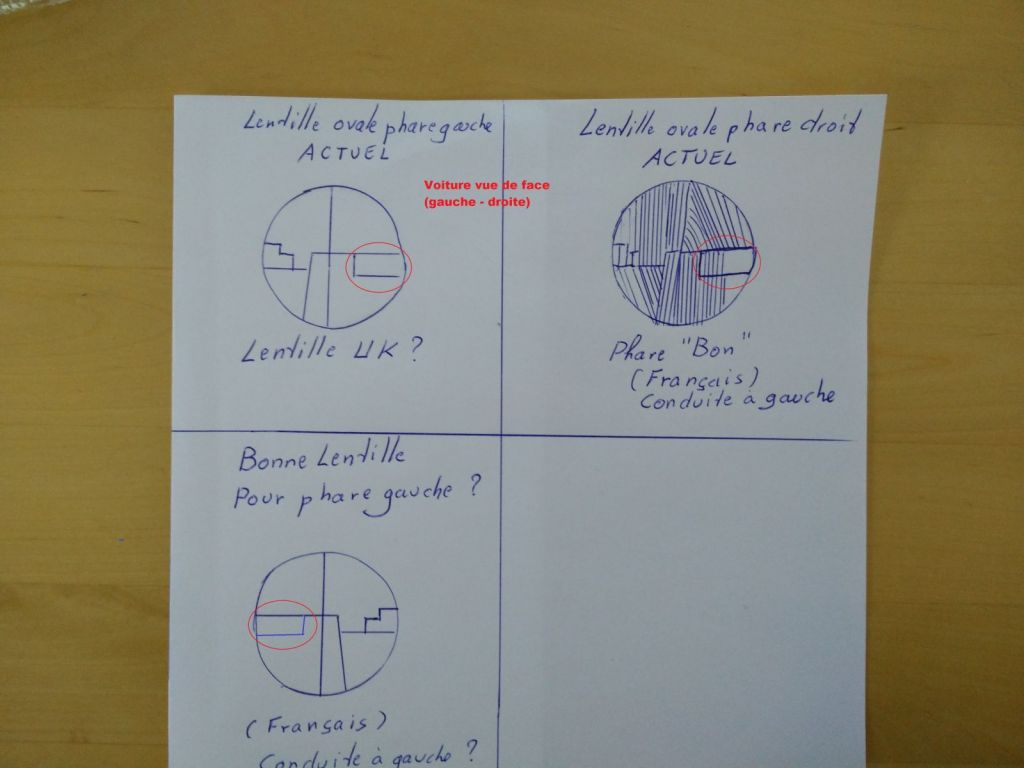 Lentille ovale phare gauche
ACTUEL
Lentille UK ?
Voiture vue de face
(gauche - droite)
Lentille ovale phare droit
ACTUEL
Phare "Bon"
(Français)
Conduite à gauche
Bonne Lentille
Pour phare gauche ?
(Français)
Conduite à gauche ?